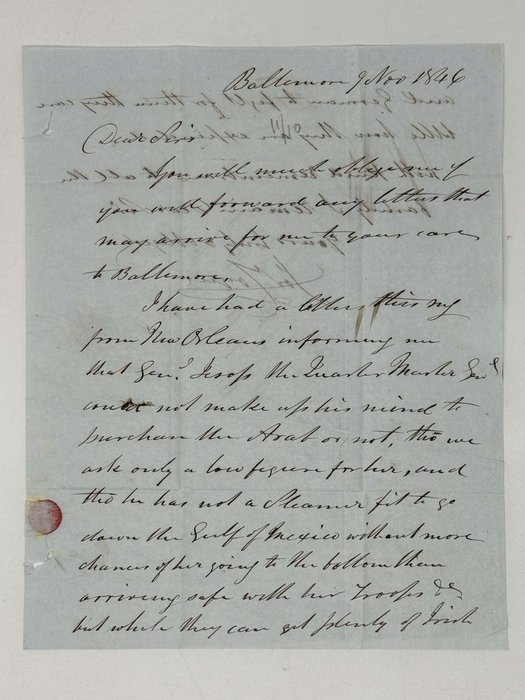 Baltimore 9 Nov 1846
Dear Sirs
You will much oblige me if
you will forward any letters that
may arrive for me to your care
to Baltimore
I have had a letter this mg
from New Orleans informing me
that Genl. Jesop the Quarter Master Genl
could not make up his mind to
purchase the Arab or not, tho we
ask only a low figure for her, and
tho he has not a Steamer fit to go
down the Gulf of Mexico without more
chances of her going to the bottom than
arriving safe with her Troops &c
but while they can get plenty of Irish